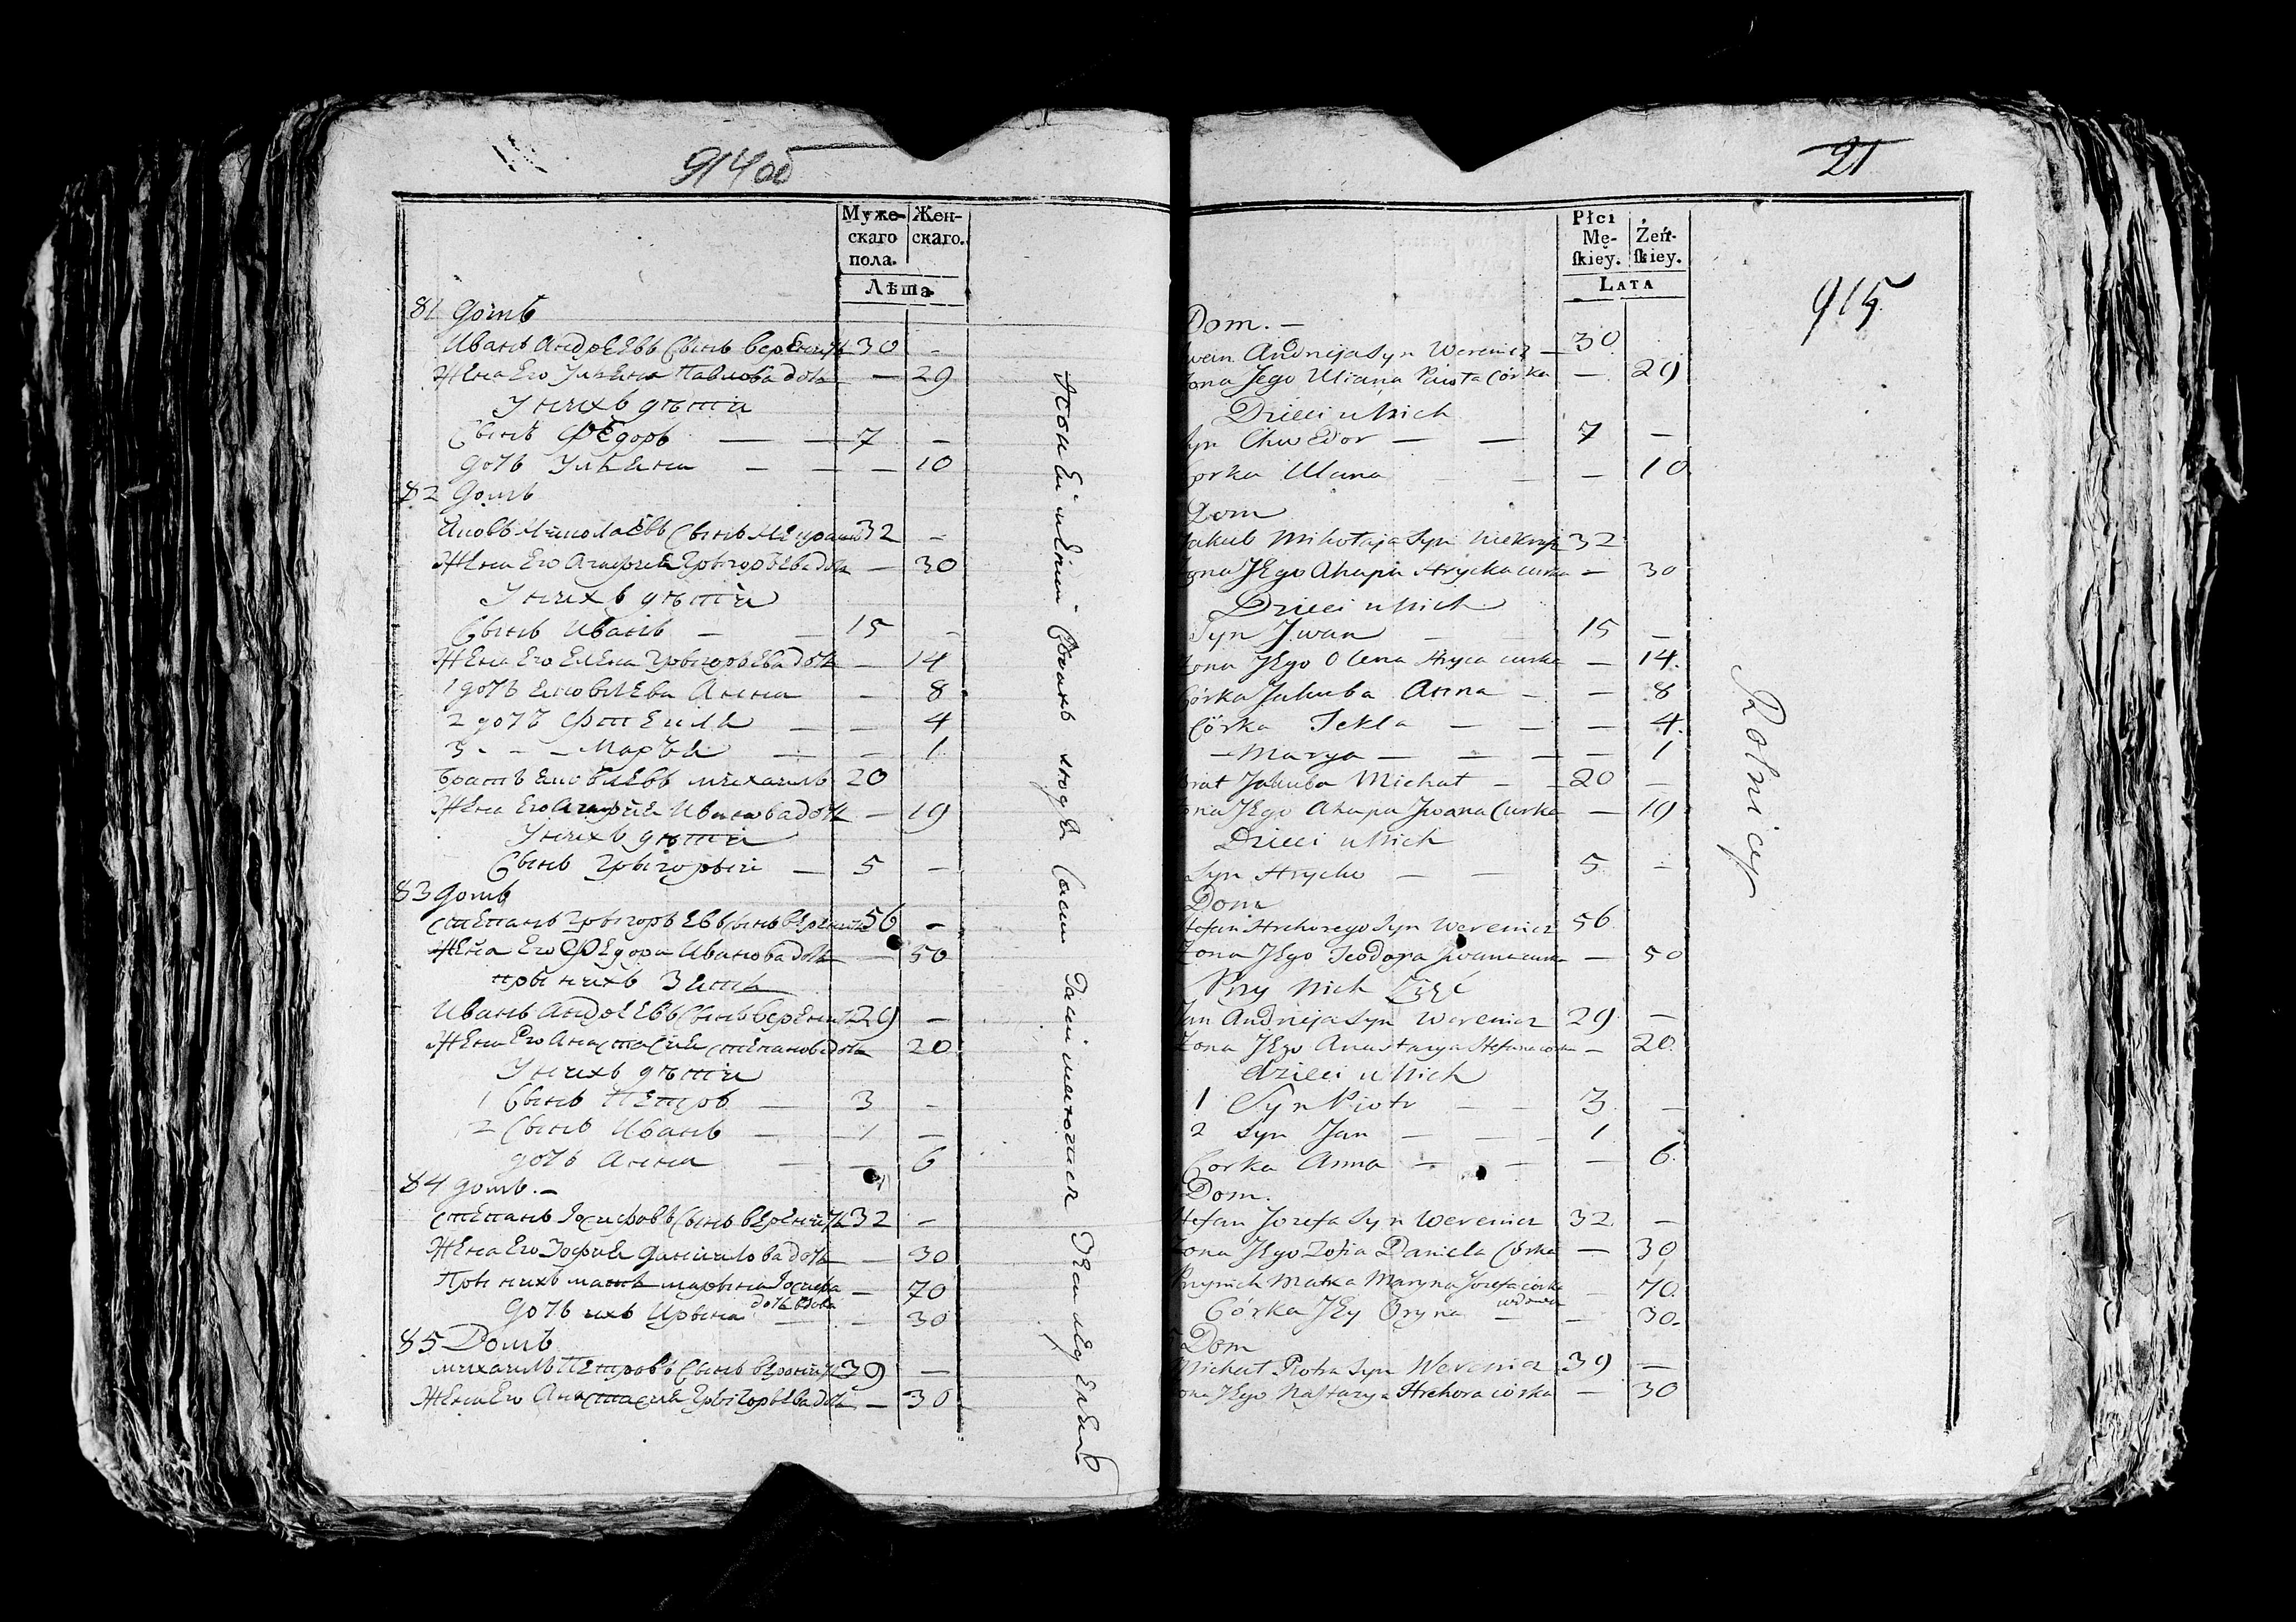 914об
Муже-
скаго
пола.
Жен-
скаго.
Лѣта
81 Домъ
Иванъ Андреевъ Сынъ Вереничь 30 -
Жена Его Ульяна Павлова дочь — 29
У нихъ дѣти
Сынъ Федоръ — — 7 —
дочь Ульяна — — — 10
82 Домъ
Николаевъ Сынъ 32 -
Жена Его Агафия Грыгорьева дочь — 30
У нихъ дѣти
Сынъ Иванъ — — 15 -
Жена Его Елена Грыгорьева дочь — 14
1 дочь Анна — 8
2 дочь — — 4
3 - - - Марья — — 1
Братъ михаилъ 20
Жена Его Агафия Иванова дочь — 19
У нихъ дѣти
Сынъ Грыгорый — 5 —
83 Домъ
Степанъ Грыгоръевъ Сынъ Вереничь 56 -
Жена Его Федора Иванова дочь — 50
при нихъ Зять
Иванъ Андреевъ Сынъ Вереничь 29 —
Жена Его Анастасия Степанова дочь 20
У нихъ дѣти
1 Сынъ Петръ — 3 -
2 Сынъ Иванъ — 1 —
дочь Анна — — 6
84 Домъ. —
Степанъ Іосифовъ Сынъ Вереничь 32 -
Жена Его Зофия Данилова дочь — 30
При нихъ мать марына Іосифа — 70
дочь вдова
дочь ихъ Ирына — — 30
85 Домъ
михаилъ Петровъ Сынъ Вереничь 39 —
Жена Его Анастасия Грыгорьева дочь — 30
21
915
Płci
Mę-
ſkiey.
Żeń-
ſkiey.
Lata
Dom. —
Andrieja Syn Werenicz — 30
Jego Uliana Pawła Córka — 29
Dzieci u Nich
Syn Chwedor — — 7 —
Corka Ulana — 10
Dom
Jakub Mikołaja Syn 32
Żona JEgo Ahapa Hrycka curka — 30
Dzieci u Nich
Syn Jwan — — 15 —
Żona JEgo Olena Hryca curka — 14.
Córka Jakuba Anna — — 8
Córka Tekla — — — 4.
— Marya — — — — 1
Brat Jakuba Michał — — 20 —
Żona JEgo Ahapa Jwana Curka — 19
Dzieci u Nich
Syn Hryćko — — 5 —
Dom
Stefan Hrehorego Syn Werenicz 56
Żona JEgo Teodora Jwana curka — 50
Przy Nich Zięć
Jan Andrieja Syn Werenicz 29 —
Żona JEgo Anastazya Stefana corka — 20.
dzieci u Nich
1 Syn Piotr — — 3 —
2 Syn Jan — — — 1
Corka Anna — — — 6.
Dom.
Stefan Jozefa Syn Werenicz 32. —
Żona JEgo Zofia Daniela Córka — 30
Przynich Matka Maryna Jozefa córka — 70.
wdowa
Córka JEy Oryna — — 30.
Dom
Michał Piotra Syn Werenicz 39 —
Żona JEgo Nastazya Hrehora córka — 30
Rolnicy